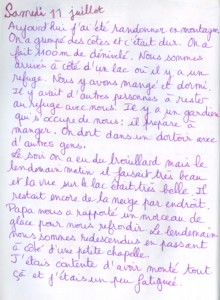 Samedi 11 juillet
Aujourd'hui j'ai été randonner en montagne
On a grimpé des côtes et c'était dur. On a
fait 1100 m de dénivelé. Nous sommes
arrivés à côté d'un lac où il y a un
refuge. Nous y avons mangé et dormi.
Il y avait d'autres personnes à rester
au refuge avec nous. Il y a un gardien
qui s'occupe de nous : il prépare à
manger. On dort dans un dortoir avec
d'autres gens.
Le soir on a eu du brouillard mais le
lendemain matin il faisait très beau
et la vue sur le lac était très belle. Il
restait encore de la neige par endroit.
Papa nous a rapporté un morceau de
glace pour nous refroidir. Le lendemain
Nous sommes redescendus en passant
à côté d'une petite chapelle.
J'étais contente d'avoir monté tout
ça et j'étais un peu fatiguée.